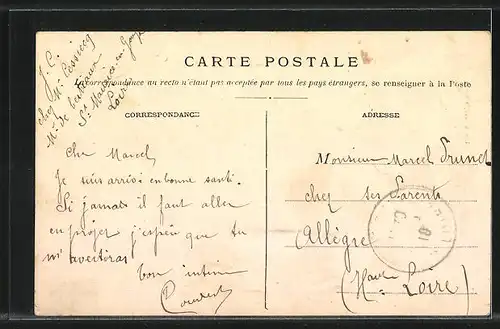 J. C.
chez Mr
Md de bestiaux
St Maurice-en-
Loire
CARTE POSTALE
La correspondance au recto n'étant pas acceptée par tous les pays étrangers, se renseigner à la Poste
CORRESPONDANCE
Cher Marcel
Je suis arrivé en bonne santé.
Si jamais il faut aller
en projet j'espère que tu
m'avertiras
bon intime
ADRESSE
Monsieur Marcel Prunet
chez ses Parents
Allègre
(Haute Loire)